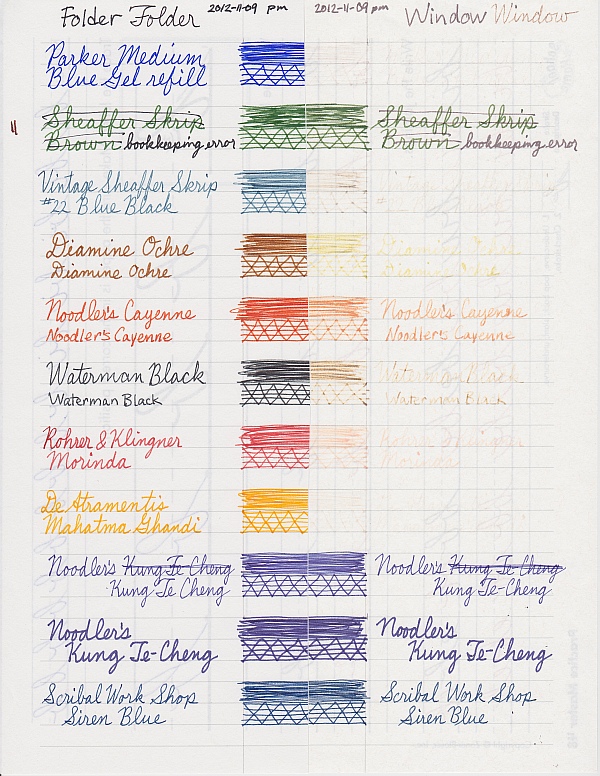 Folder Folder 2012-11-09 pm 2012-11-09 pm Window Window
Parker Medium
Blue Gel refill
11
Sheaffer Skrip Sheaffer Skrip
Brown bookkeeping error Brown bookkeeping error
Vintage Sheaffer Skrip
#22 Blue Black #
Diamine Ochre Diamine Ochre
Diamine Ochre Diamine Ochre
Noodler's Cayenne Noodler's Cayenne
Noodler's Cayenne Noodler's Cayenne
Waterman Black Waterman Black
Waterman Black Waterman Black
Rohrer & Klingner Rohrer & Klingner
Morinda Morinda
De Atramentis
Mahatma Ghandi
Noodler's Kung Te-Cheng Noodler's Kung Te-Cheng
Kung Te Cheng Kung Te-Cheng
Noodler's Noodler's
Kung Te-Cheng Kung Te-Cheng
Scribal Work Shop Scribal Work Shop
Siren Blue Siren Blue